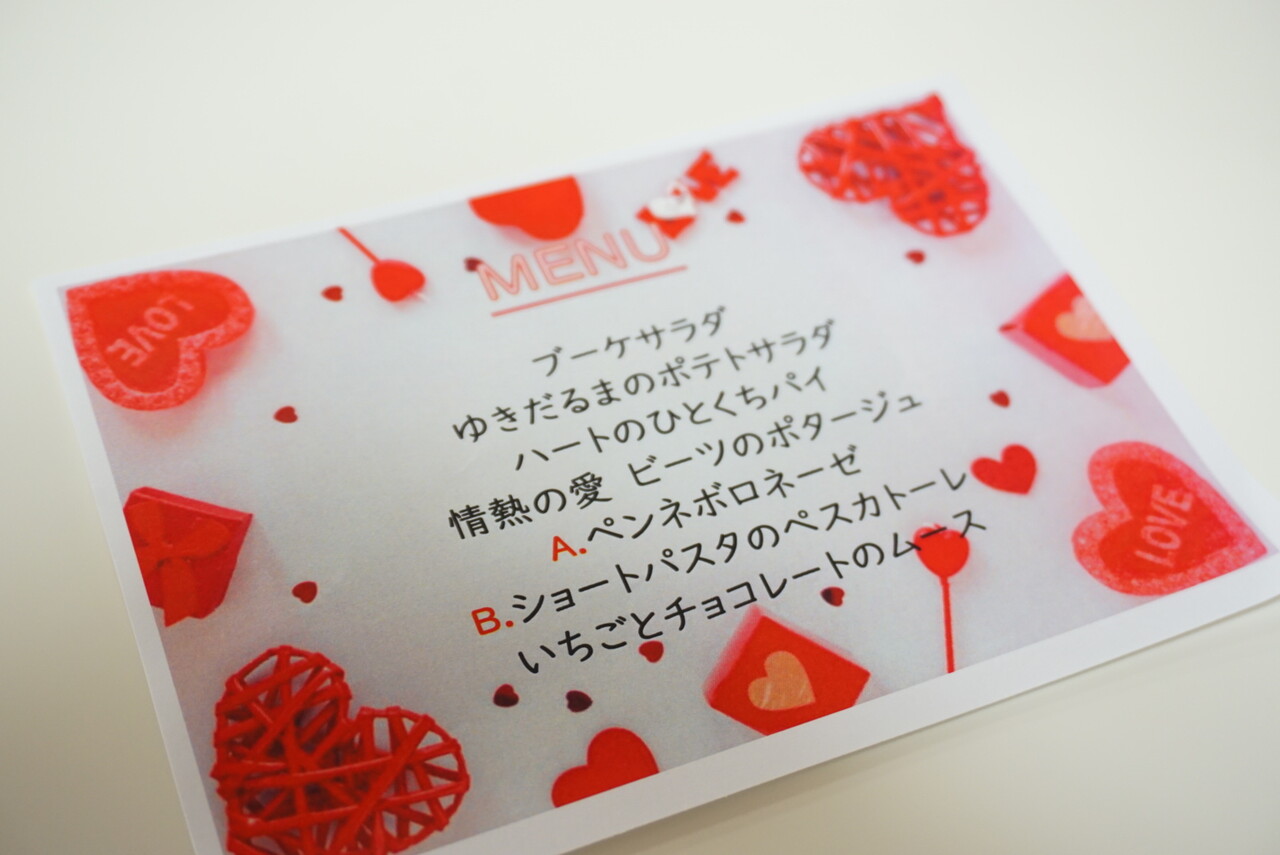 MENU
ブーケサラダ
ゆきだるまのポテトサラダ
ハートのひとくちパイ
情熱の愛 ビーツのポタージュ
A.ペンネボロネーゼ
B.ショートパスタのペスカトーレ
いちごとチョコレートのムース
LOVE
LOVE